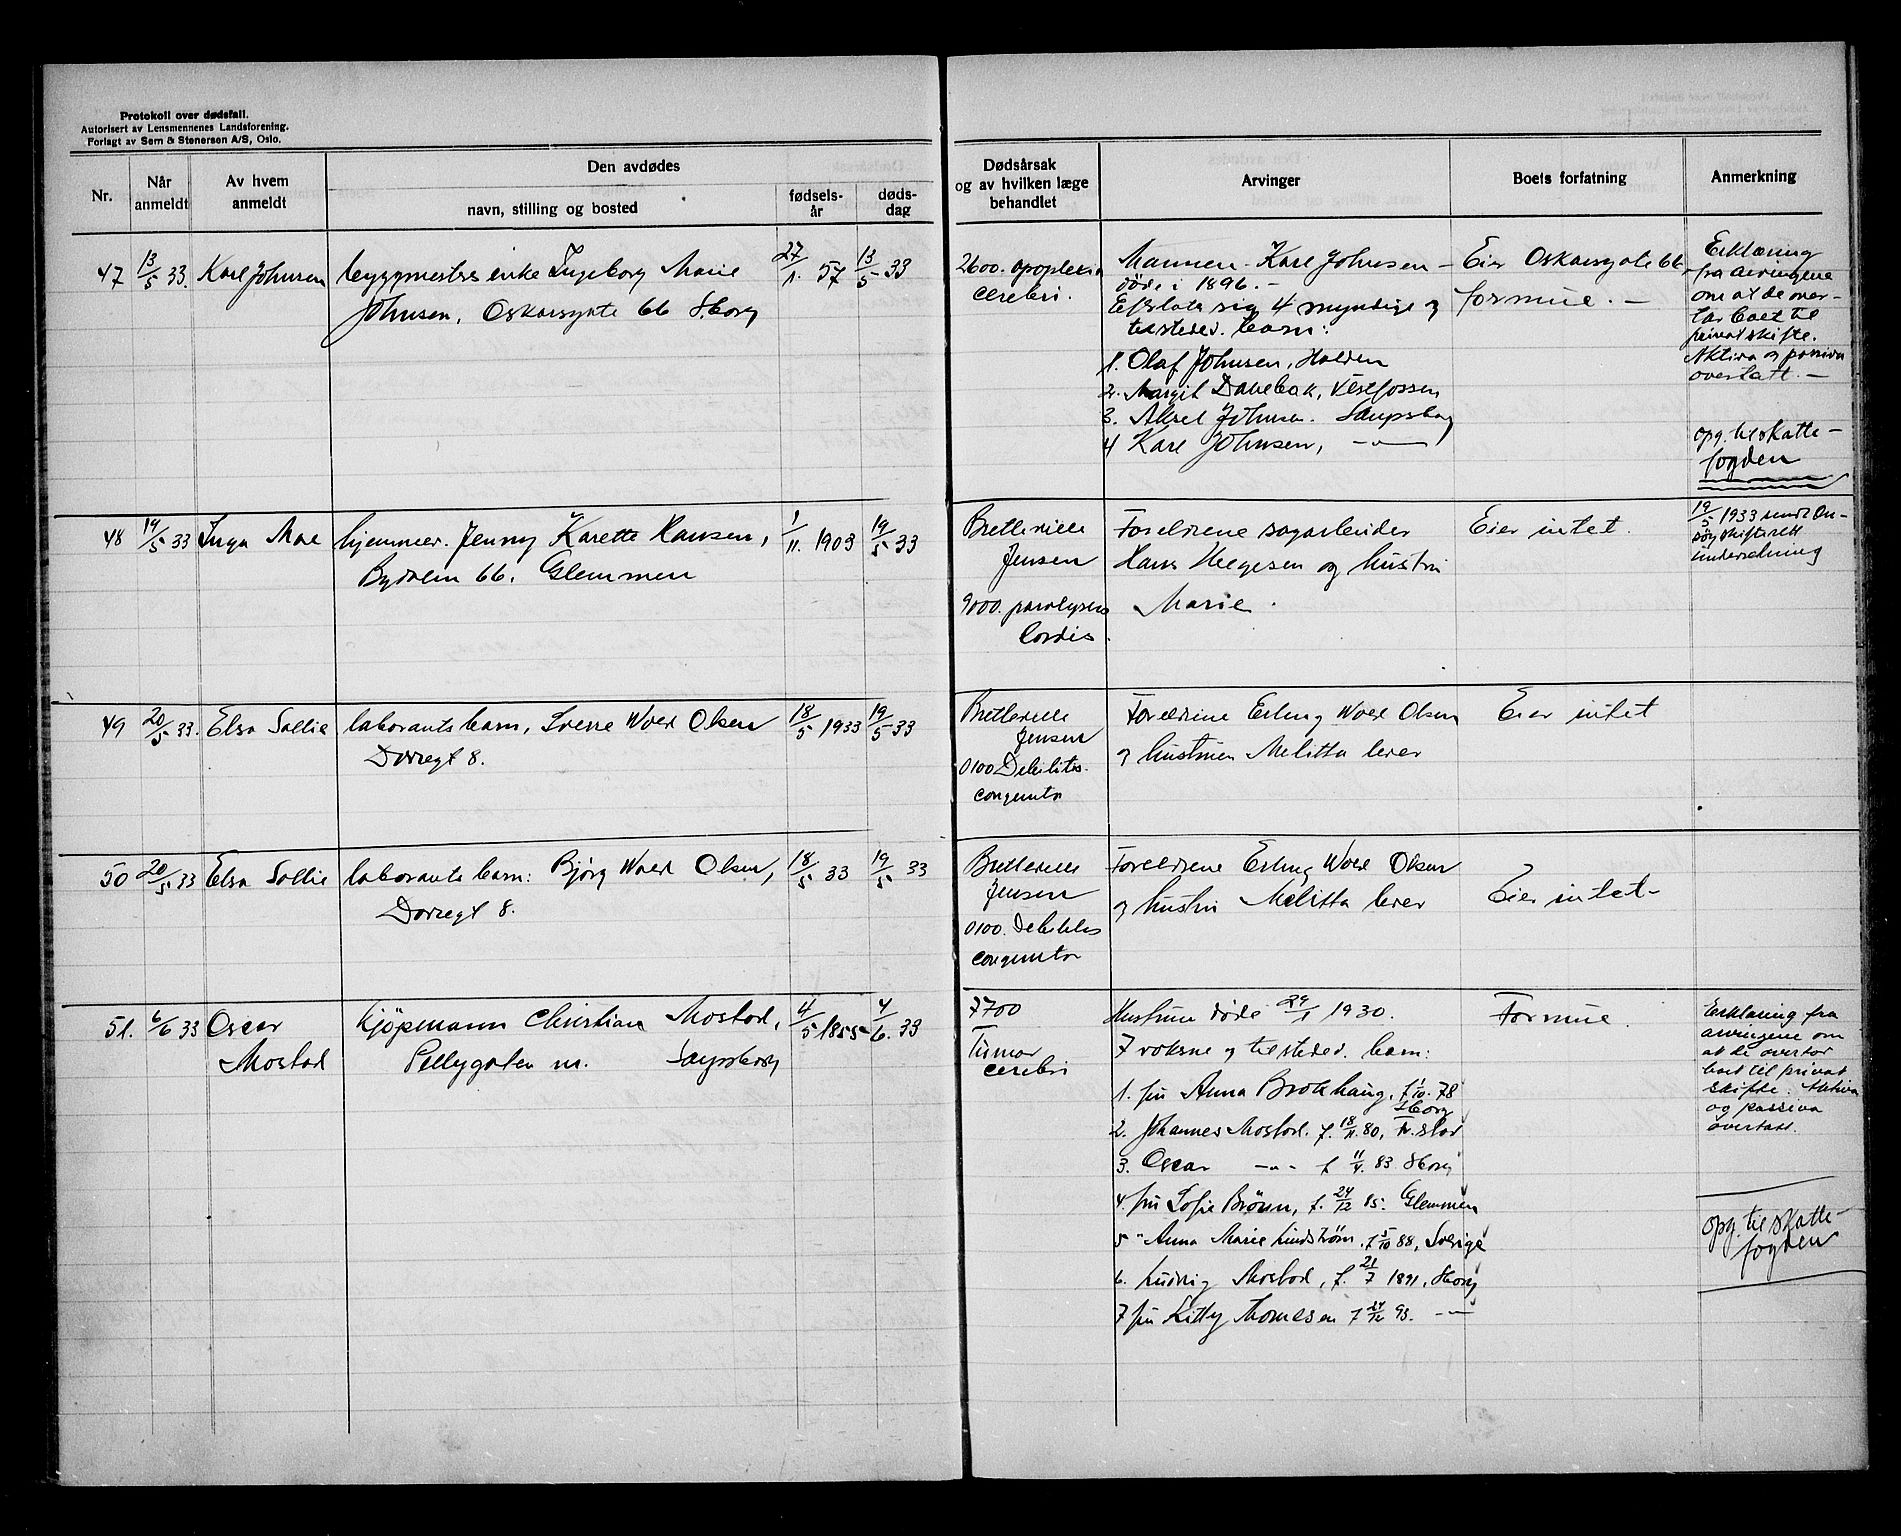 Protokoll over dødsfall.
Autorisert av Lensmennenes Landsforening.
Forlagt av Sem & Stenersen A/S, Oslo.
Nr.
Når anmeldt
Av hvem anmeldt
Den avdødes
navn, stilling og bosted
fødsels-år
døds-dag
Dødsårsak og av hvilken læge behandlet
Arvinger
Boets forfatning
Anmerkning
47 13/5 33. Karl Johnsen
byggmesters enke Ingeborg Marie
Johnsen, Oskarsgate 66 S.borg
27/1. 57 13/5 33
2600. apoplexia
cerebri.
Mannen Karl Johnsen
døde i 1896. -
Efterlater sig 4 myndige og
tilstedev. barn:
1. Olaf Johnsen, Halden
2. Margit Danebak, Vestfossen
3. Aksel Johnsen. Sarpsborg
4 Karl Johnsen, -"-
Eier Oskarsgate 66
formue. -
Erklæring
fra arvingene
om at de over-
tar boet til
privat skifte.
Aktiva og passiva
overtatt. -
opg. til skatte-
fogden
48 19/5 33 Inga Moe
hjemmev. Jenny Karette Hansen,
Bydalen 66. Glemmen
1/11. 1903 19/5 33
Bretteville
Jensen
9000. paralysis
Cordis.
Foreldrene sagarbeider
Hans Helgesen og hustru
Marie.
Eier intet.
19/5 1933 sendt On-
søy skifterett
underretning
49 20/5 33. Elsa Sollie
laborants barn, Sverre Wold Olsen
Dovregt 8.
18/5 1933 19/5 33
Bretteville
Jensen
0100 Debilitas
congenita
Foreldrene Erling Wold Olsen
og hustruen Melitta lever
Eier intet
50 20/5 33 Elsa Sollie
laborants barn: Bjørg Wold Olsen,
Dovregt 8.
18/5 33 19/5 33
Bretteville
Jensen
0100. Debilitas
congenita
Foreldrene Erling Wold Olsen
og hustru Melitta lever
Eier intet -
51. 6/6 33 Oscar
Mostad
Kjøpmann Christian Mostad,
Pellygaten Sarpsborg
4/5 1855 4/6. 33
7700
Tumor
cerebri
Hustruen døde 29/1 1930.
7 voksne og tilstedev. barn:
1. fru Anna Brokhaug, f 1/10. 78
S.borg
2. Johannes Mostad. f. 18/11. 80, Fr.stad
3. Oscar -"- f 11/4. 83 S.borg
4. fru Sofie Brönn, f. 24/12 85. Glemmen
5 " Anna Marie Lindström, f 5/10 88, Sverige
6. Ludvig Mostad, f. 21/7 1891, S.borg
7 fru Kitty Thomesen f 24/12 93. -"-
Formue.
Erklæring fra
arvingene om
at de overtar
boet til privat
skifte. Aktiva
og passiva
overtatt.
opg. til skatte-
fogden